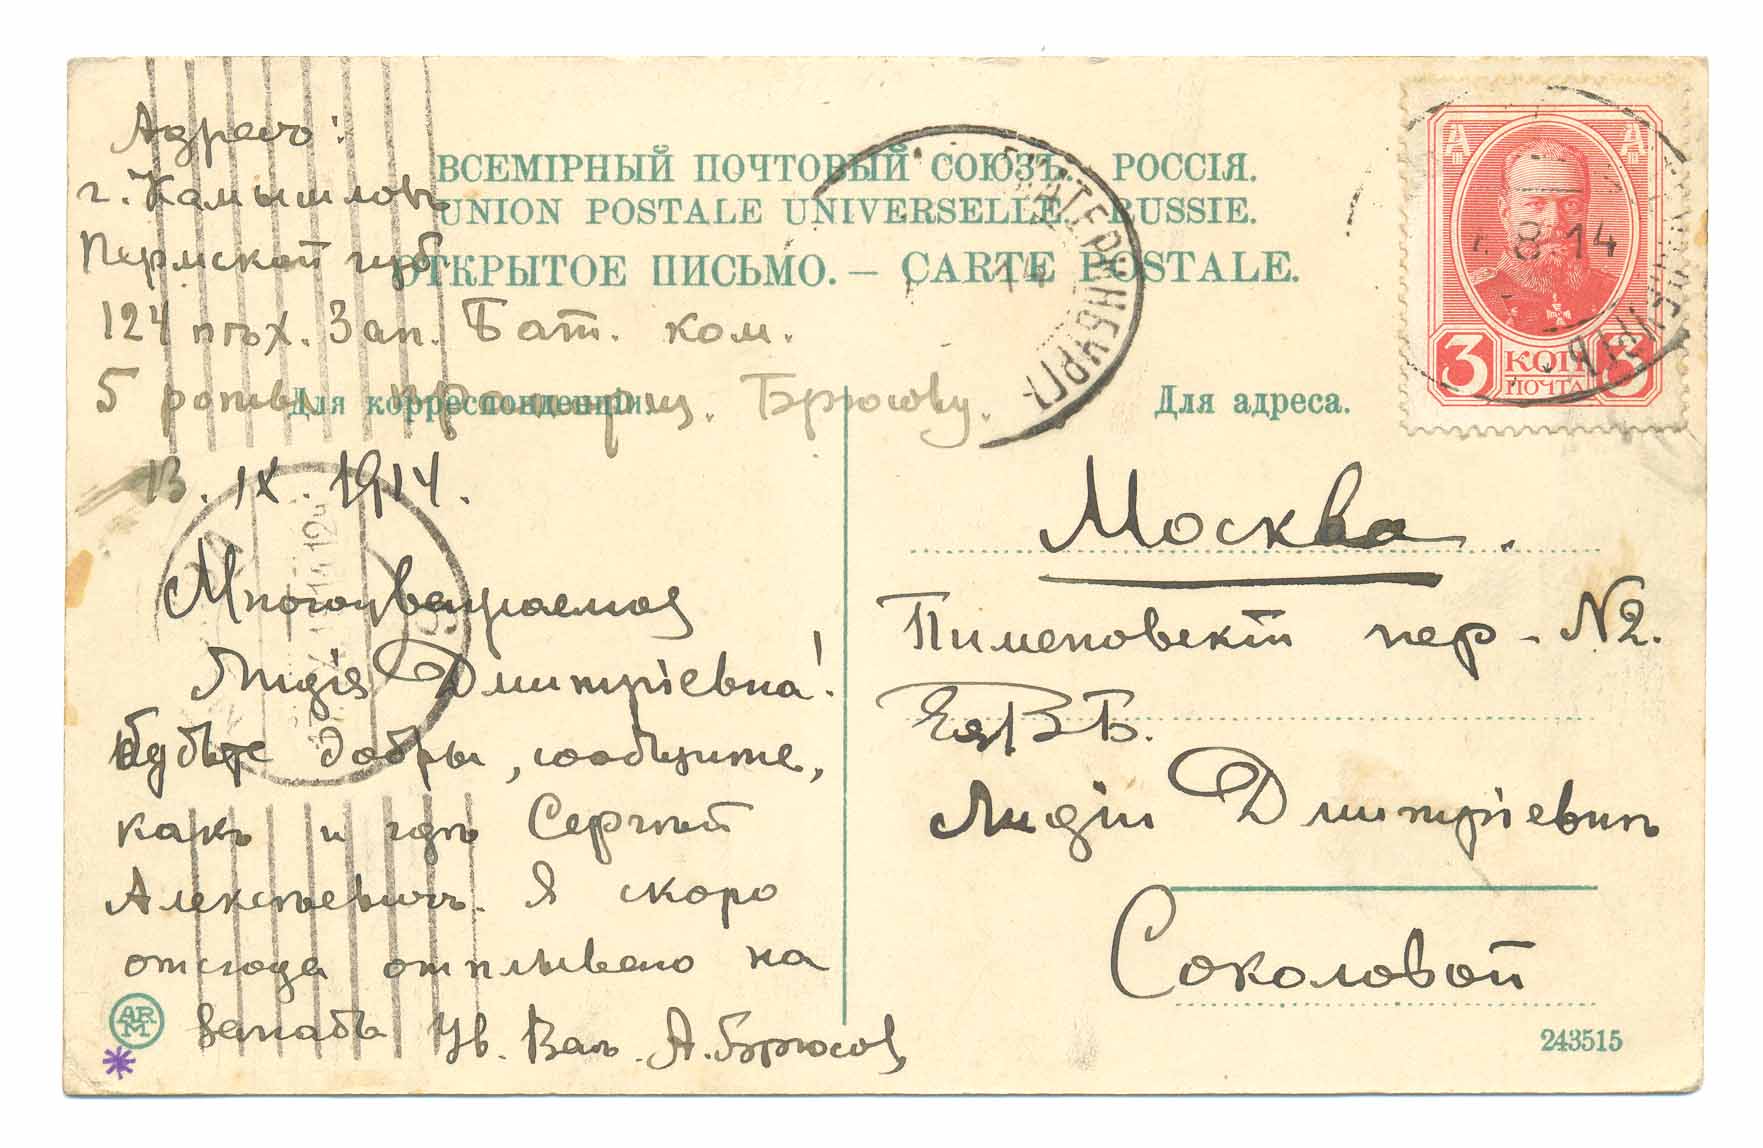 Адресъ:
г. Камышловъ
Пермской губ.
124 пѣх. Зап. Бат. ком.
5 роты прапорщ. Брюсову.
ВСЕМІРНЫЙ ПОЧТОВЫЙ СОЮЗЪ. РОССІЯ.
UNION POSTALE UNIVERSELLE. RUSSIE.
ОТКРЫТОЕ ПИСЬМО. — CARTE POSTALE.
Для корреспонденціи.
Для адреса.
13. IX. 1914.
Многоуважаемая
Лидія Дмитріевна!
Будьте добры, сообщите,
какъ и гдѣ Сергѣй
Алексѣевичъ. Я скоро
отсюда отплываю на
западъ Ув. Вал. А. Брюсов
Москва.
Пименовскій пер. №2.
ЕяВБ.
Лидіи Дмитріевнѣ
Соколовой
243515
ARM
А А
3 КОП 3
ПОЧТА
8 14
ЕКАТЕРИНБУРГЪ
14